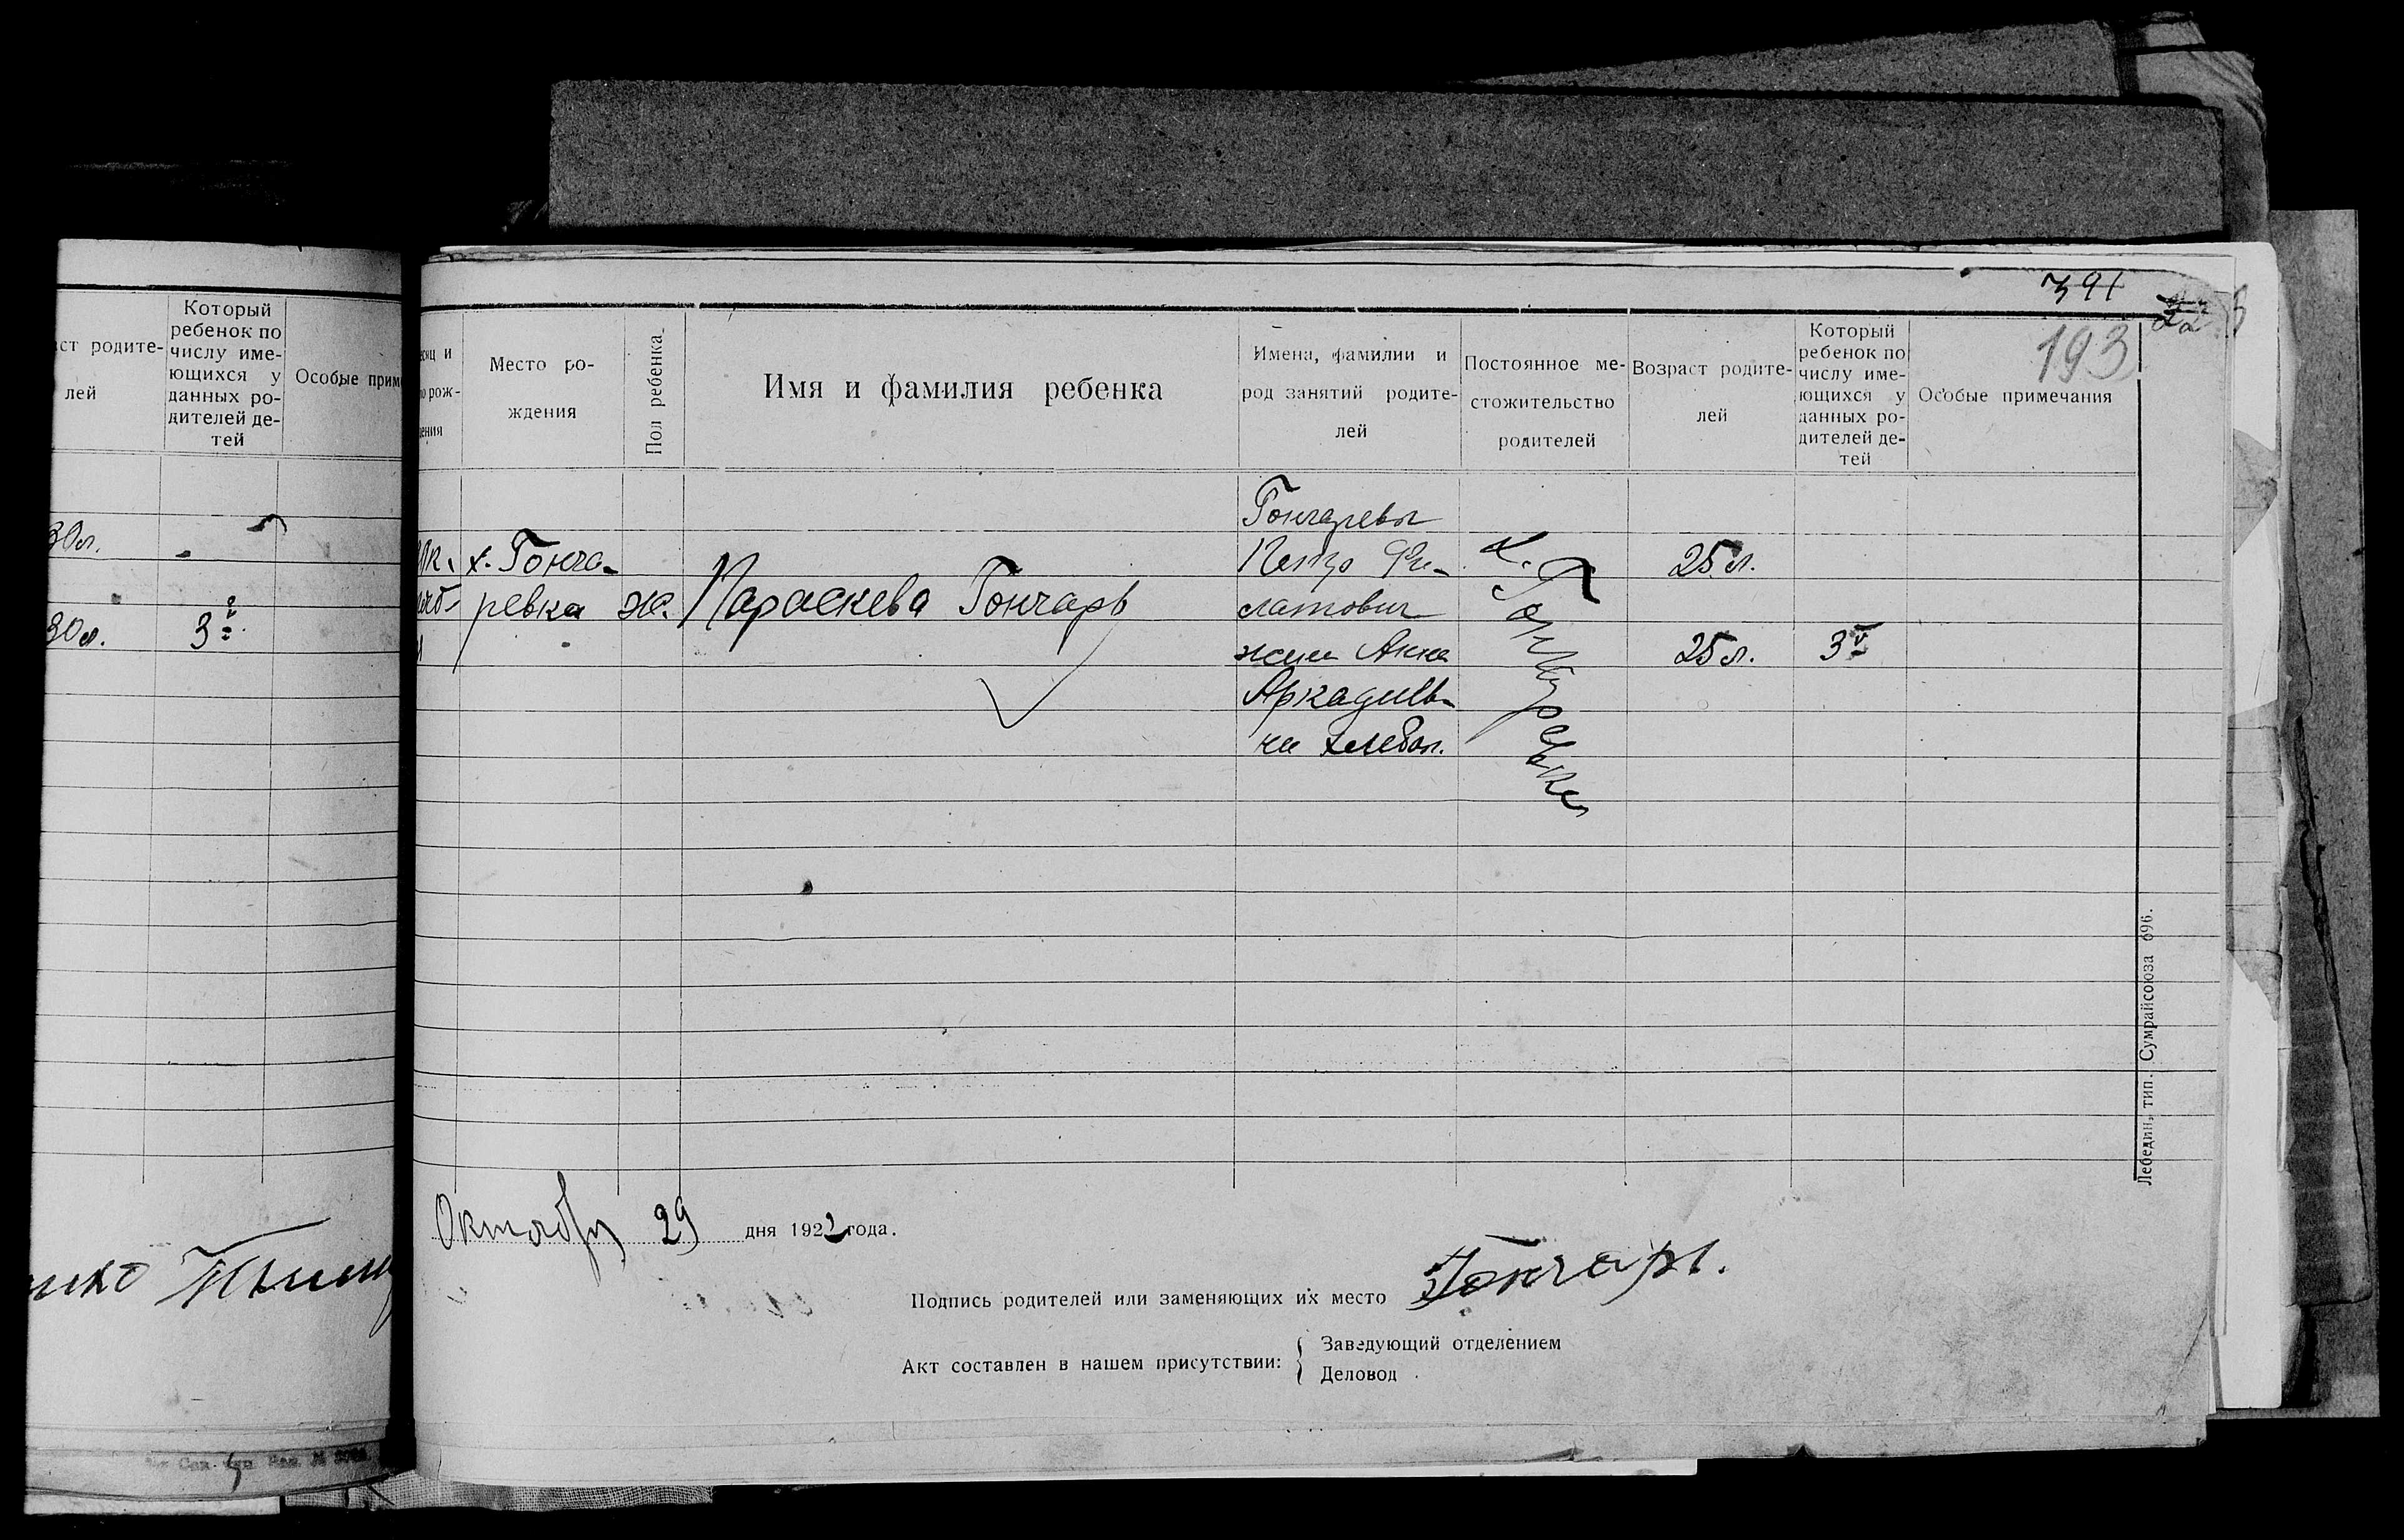 Который
ребенок по
числу име-
ющихся у
данных ро-
дителей де-
тей
ст родите-
лей
Особые прим
30 л.
30 л.
3
391
193
сяц и
о рож-
ения
Место ро-
ждения
Пол ребенка
Имя и фамилия ребенка
Имена, фамилии и
род занятий родите-
лей
Постоянное ме-
стожительство
родителей
Возраст родите-
лей
Который
ребенок по
числу име-
ющихся у
данных ро-
дителей де-
тей
Особые примечания
х. Гонча-
ревка
ж.
Параскева Гончарь
Гончаревы
Петро Фи-
латович
жена Анна
Аркадиев-
на хлебоп.
х. Гончаревка
25 л.
25 л.
3й
Октября 29 дня 1922 года.
Подпись родителей или заменяющих их место Гончарь.
Акт составлен в нашем присутствии:
Заведующий отделением
Деловод
Лебедин, тип. Сумрайсоюза 696.